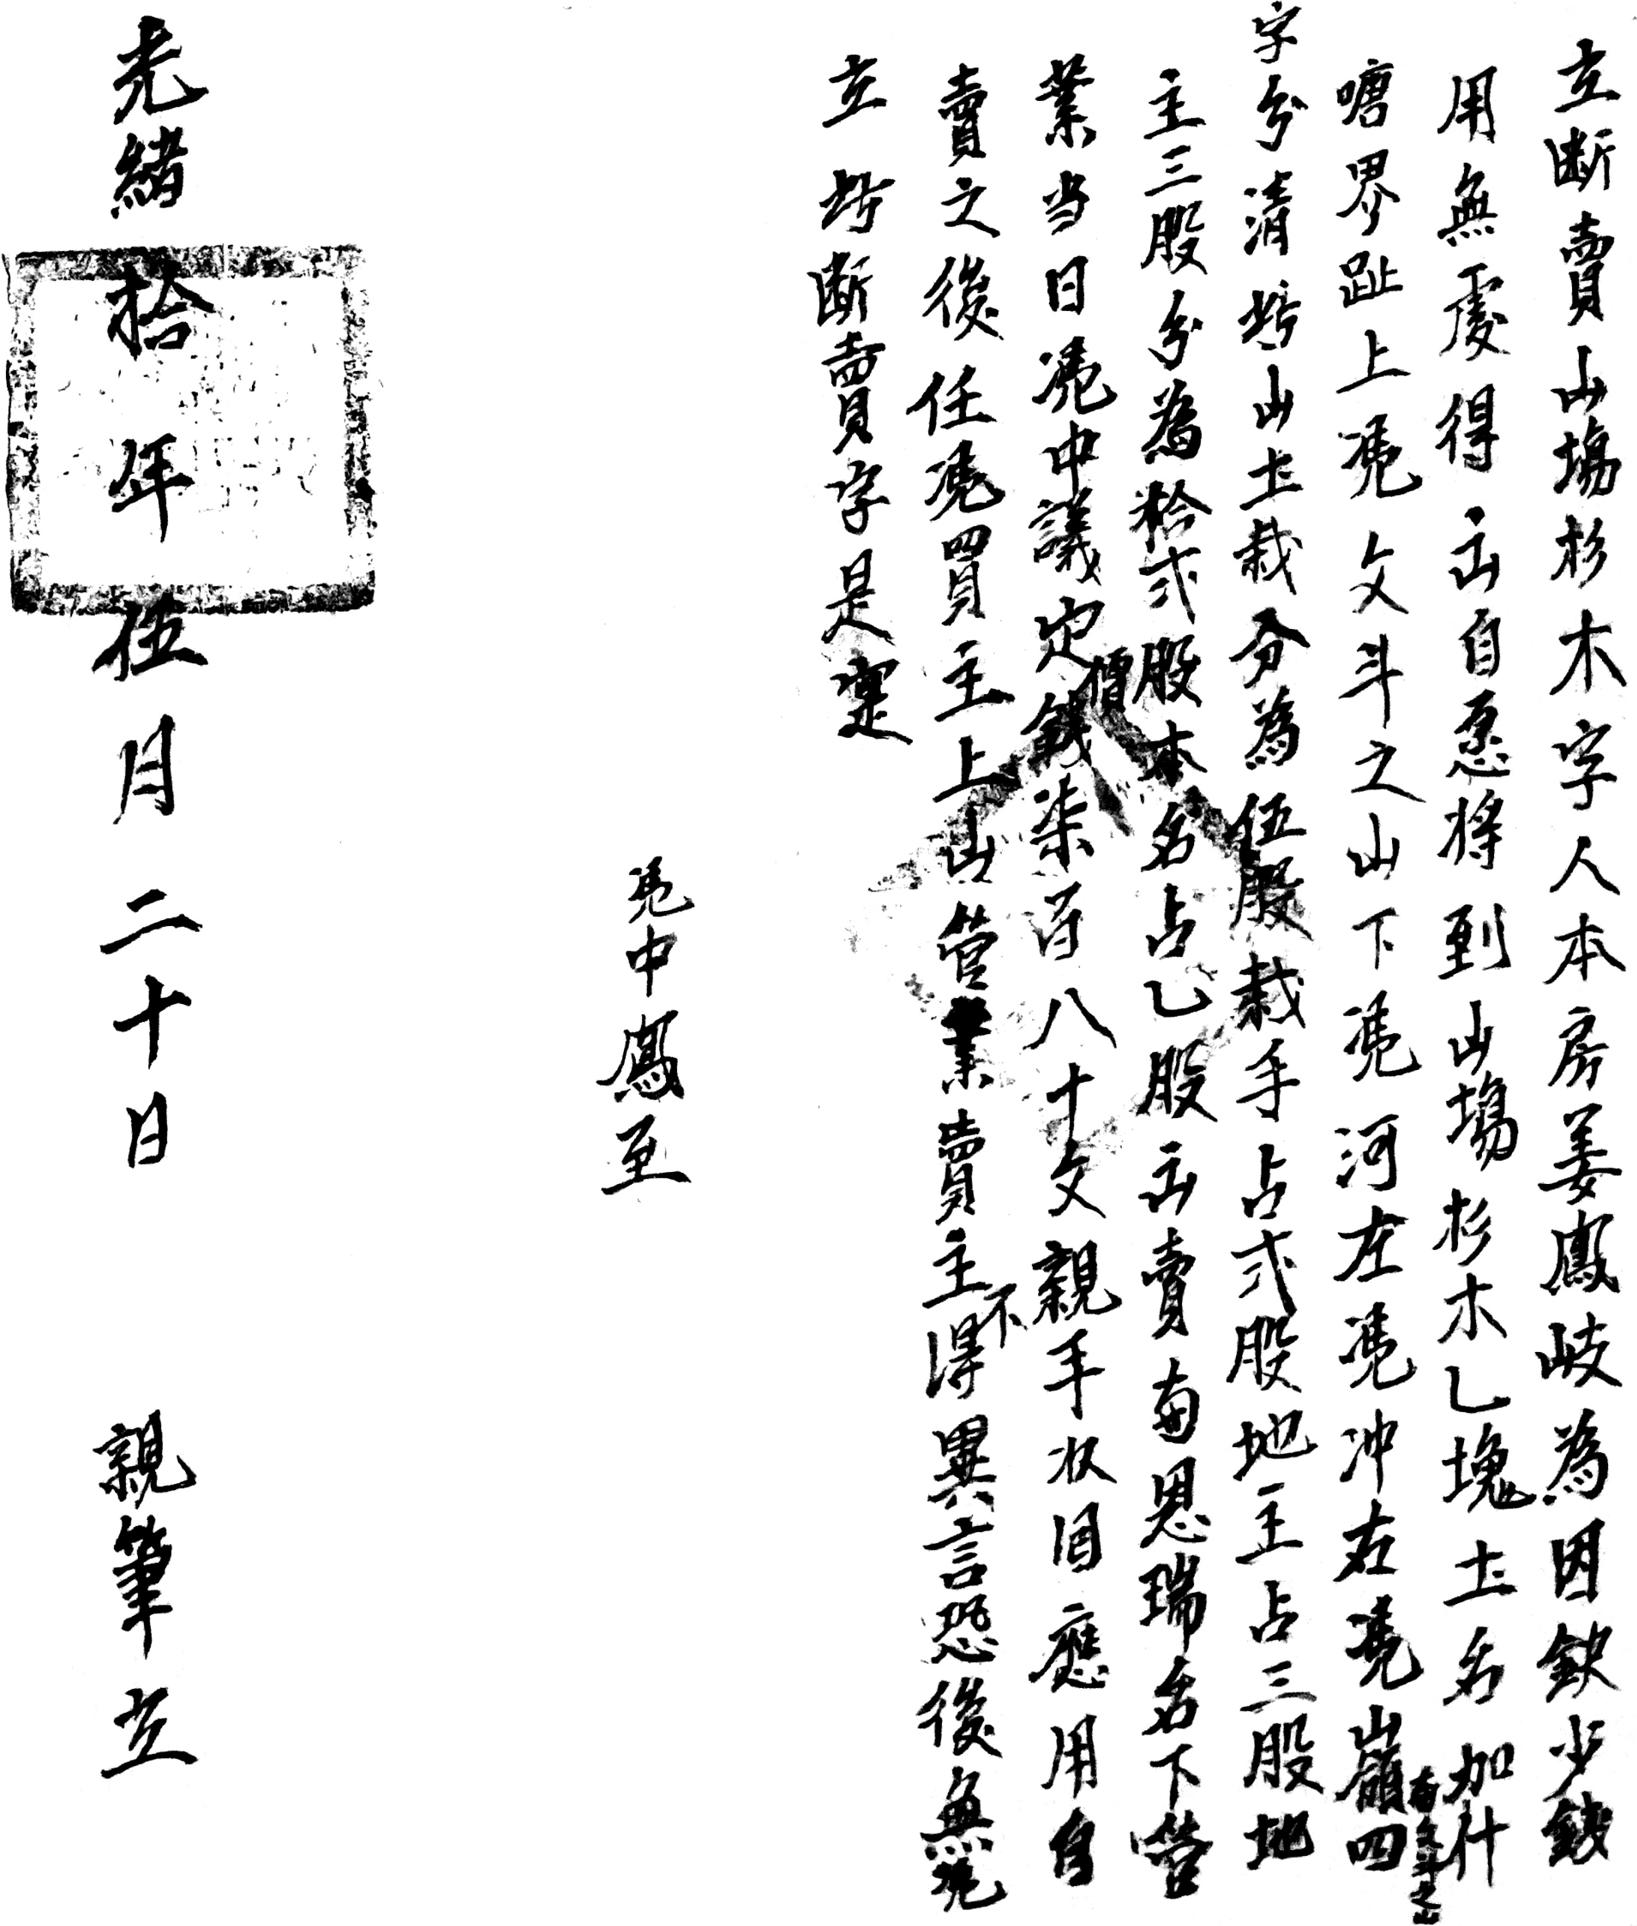 立断賣山塲杉木字人本房姜鳳岐為因缺少錢
用無處得出自愿将到山塲杉木乙塊土名加什
塘界趾上凴文斗之山下凴河左凴冲右凴嶺四
至文斗之山
字分清此山土栽分為伍股栽手占弍股地主占三股地
主三股分為拾弍股本名占乙股出賣與恩瑞名下管
業当日凴中議定價錢柒百八十文親手收囬應用自
賣之後任凴買主上山管業賣主不得異言恐後無凴
立此断賣字是寔
凴中鳳至
光緒拾年伍月二十日 親筆立